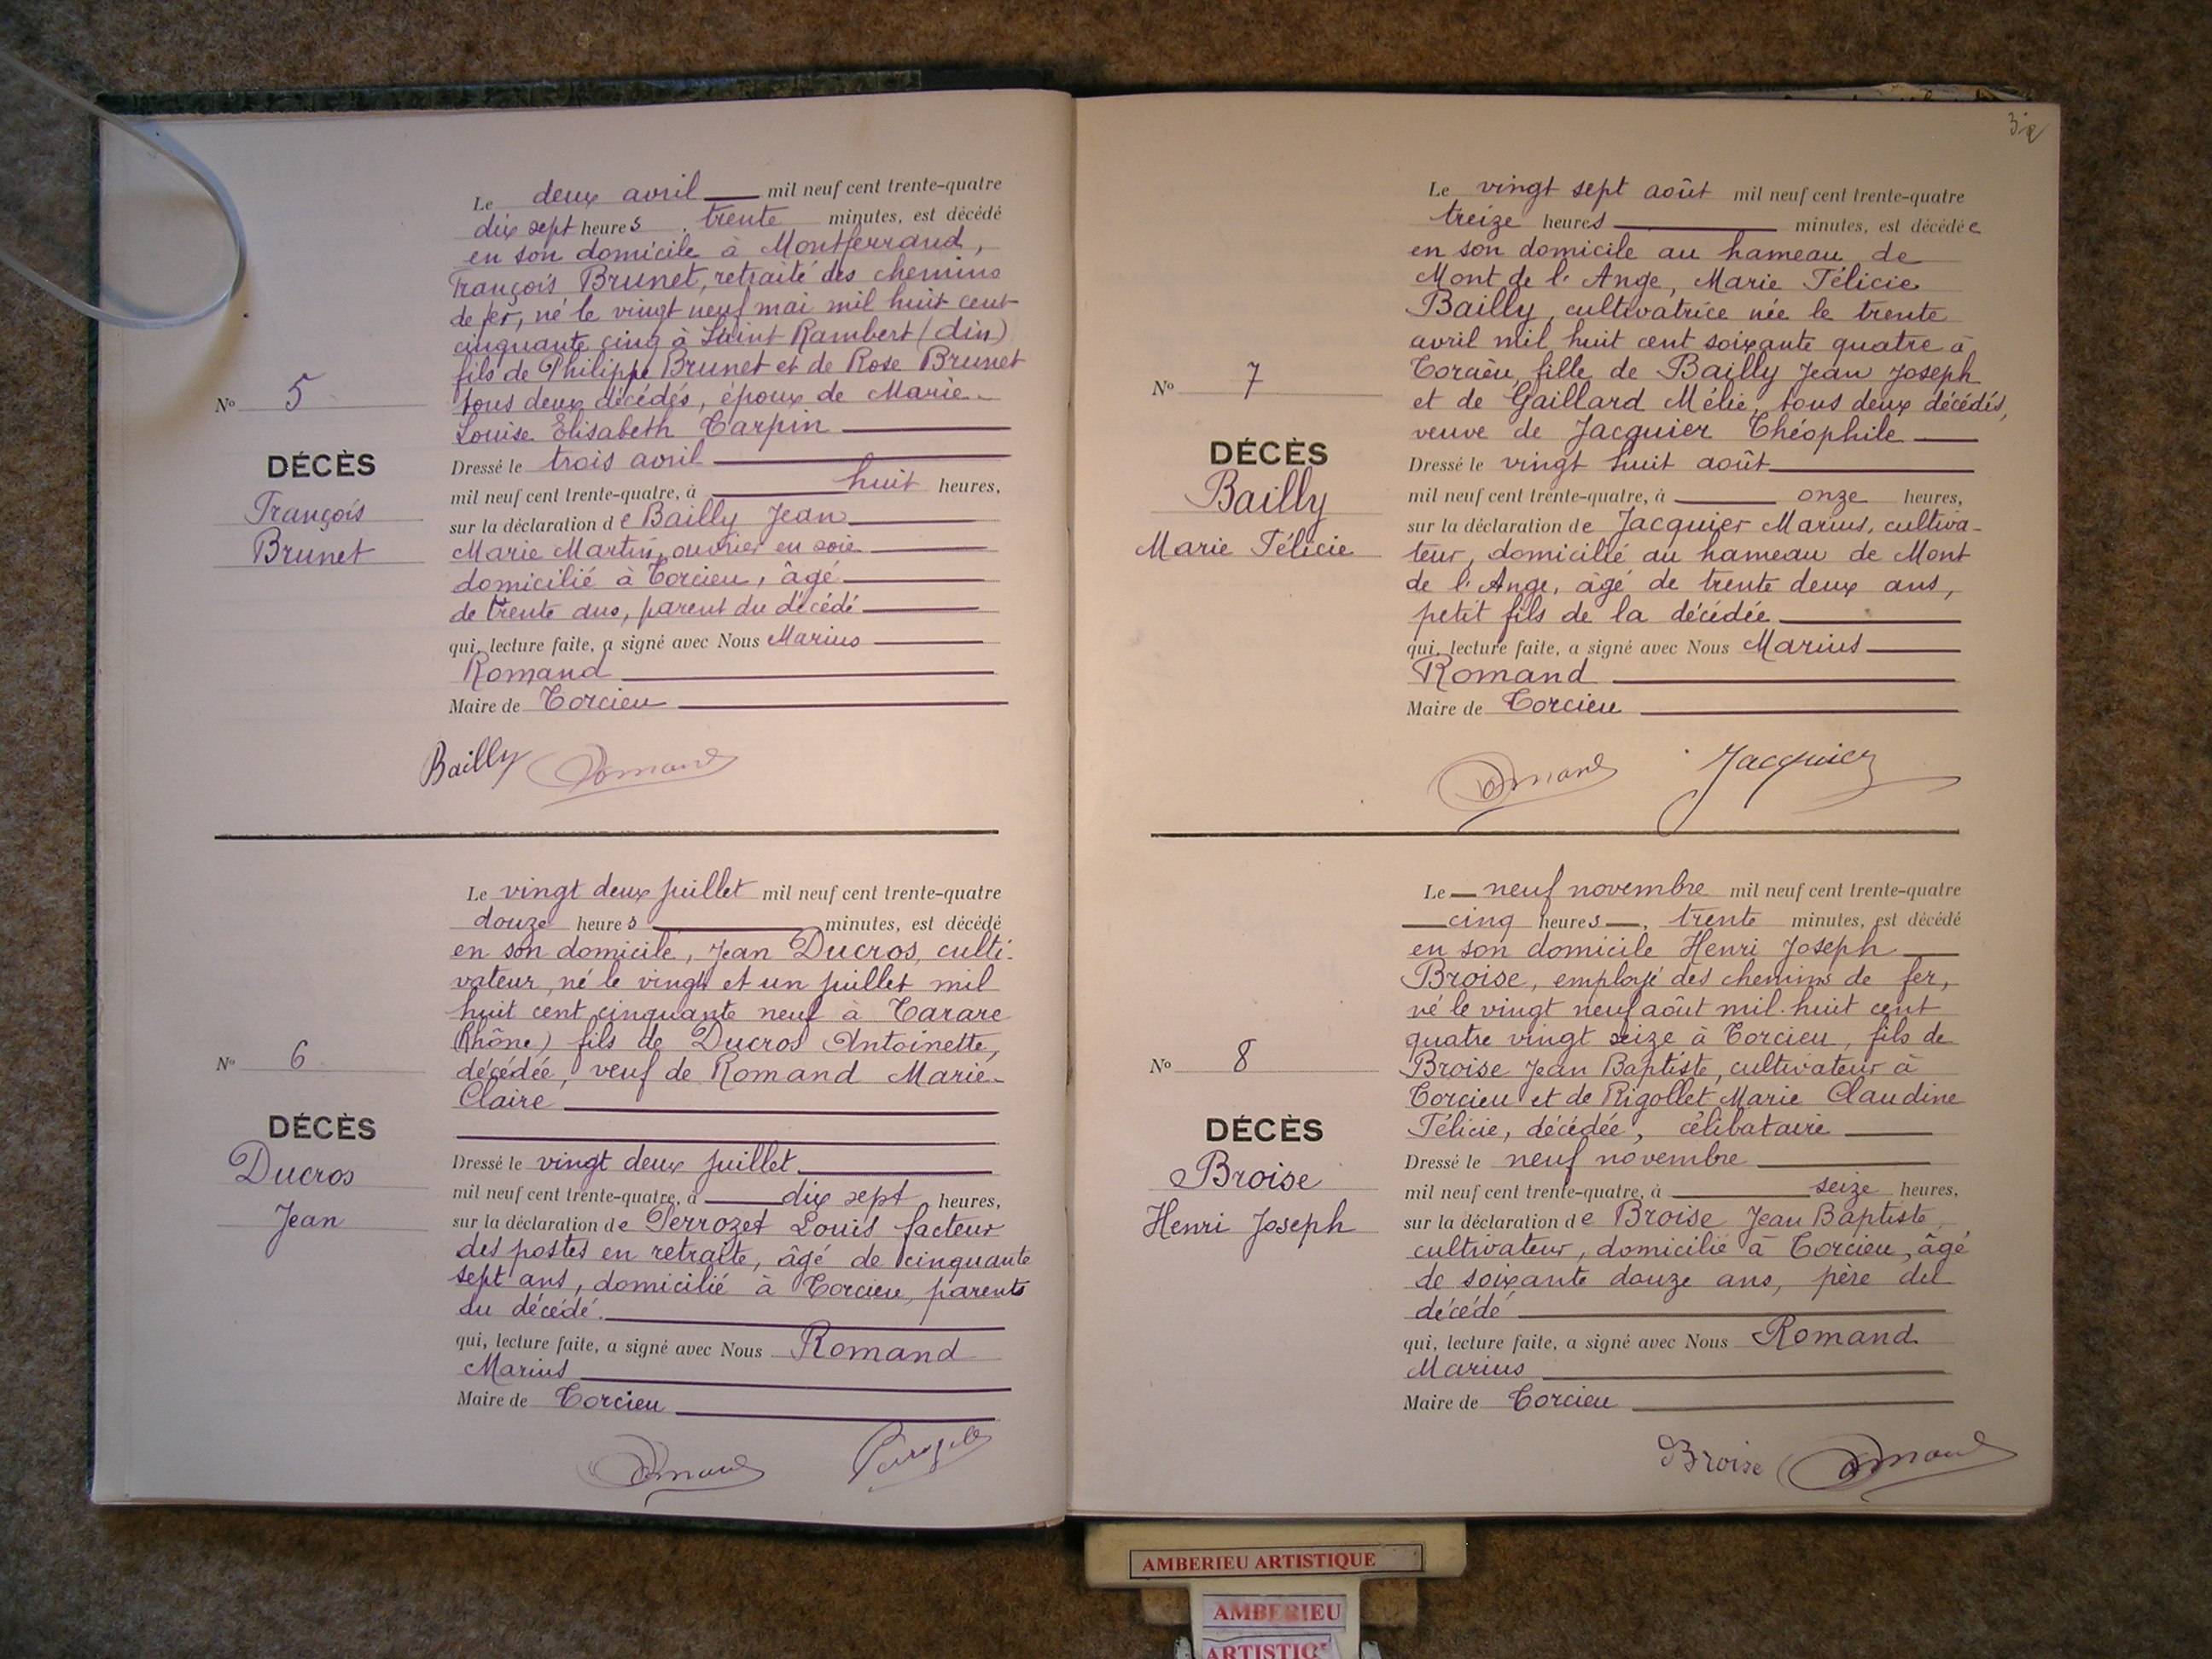 Le deux avril mil neuf cent trente-quatre
dix sept heures, trente minutes, est décédé
en son domicile à Montferrand,
François Brunet, retraité des chemins
de fer, né le vingt neuf mai mil huit cent
cinquante cinq à Saint Rambert (Ain)
fils de Philippe Brunet et de Rose Brunet
tous deux décédés, époux de Marie
Louise Elisabeth Tarpin
Dressé le trois avril
mil neuf cent trente-quatre, à huit heures,
sur la déclaration de Bailly Jean
Marie Martin, ouvrier en soie
domicilié à Torcieu, âgé
de trente ans, parent du décédé
qui, lecture faite, a signé avec Nous Marius
Romand
Maire de Torcieu
Bailly Romand
No 5
DÉCÈS
François
Brunet
Le vingt deux juillet mil neuf cent trente-quatre
douze heures minutes, est décédé
en son domicile, Jean Ducros, culti-
vateur, né le vingt et un juillet mil
huit cent cinquante neuf à Tarare
(Rhône) fils de Ducros Antoinette,
décédée, veuf de Romand Marie-
Claire
Dressé le vingt deux juillet
mil neuf cent trente-quatre, à dix sept heures,
sur la déclaration de Perrozet Louis facteur
des postes en retraite, âgé de cinquante
sept ans, domicilié à Torcieu, parents
du décédé.
qui, lecture faite, a signé avec Nous Romand
Marius
Maire de Torcieu
Romand
No 6
DÉCÈS
Ducros
Jean
Le vingt sept août mil neuf cent trente-quatre
treize heures minutes, est décédée
en son domicile au hameau de
Mont de l'Ange, Marie Félicie
Bailly, cultivatrice née le trente
avril mil huit cent soixante quatre à
Torcieu, fille de Bailly Jean Joseph
et de Gaillard Mélie, tous deux décédés,
veuve de Jacquier Théophile
Dressé le vingt huit août
mil neuf cent trente-quatre, à onze heures,
sur la déclaration de Jacquier Marius, cultiva-
teur, domicilié au hameau de Mont
de l'Ange, âgé de trente deux ans,
petit fils de la décédée
qui, lecture faite, a signé avec Nous Marius
Romand
Maire de Torcieu
Romand Jacquier
No 7
DÉCÈS
Bailly
Marie Félicie
Le neuf novembre mil neuf cent trente-quatre
cinq heures, trente minutes, est décédé
en son domicile Henri Joseph
Broise, employé des chemins de fer,
né le vingt neuf août mil huit cent
quatre vingt seize à Torcieu, fils de
Broise Jean Baptiste, cultivateur à
Torcieu et de Rigollet Marie Claudine
Félicie, décédée, célibataire
Dressé le neuf novembre
mil neuf cent trente-quatre, à seize heures,
sur la déclaration de Broise Jean Baptiste,
cultivateur, domicilié à Torcieu, âgé
de soixante douze ans, père du
décédé
qui, lecture faite, a signé avec Nous Romand
Marius
Maire de Torcieu
Broise Romand
No 8
DÉCÈS
Broise
Henri Joseph
AMBERIEU ARTISTIQUE
AMBERIEU
ARTISTIQ